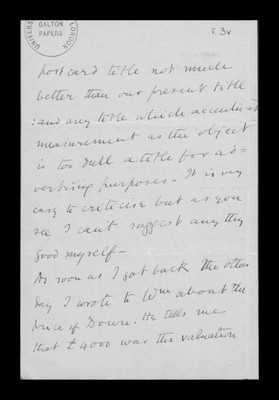 GALTON
PAPERS
UNIVERS
LONDON
53v
postcard title not much
better than our present title
:and any title which accentuates
measurement as the object
is too dull a title for ad-
vertising purposes - It is very
easy to criticise but as you
see I can't suggest any thing
good myself -
As soon as I got back the other
day I wrote to Wm about the
price of Down. He tells me
that £4000 was the valuation